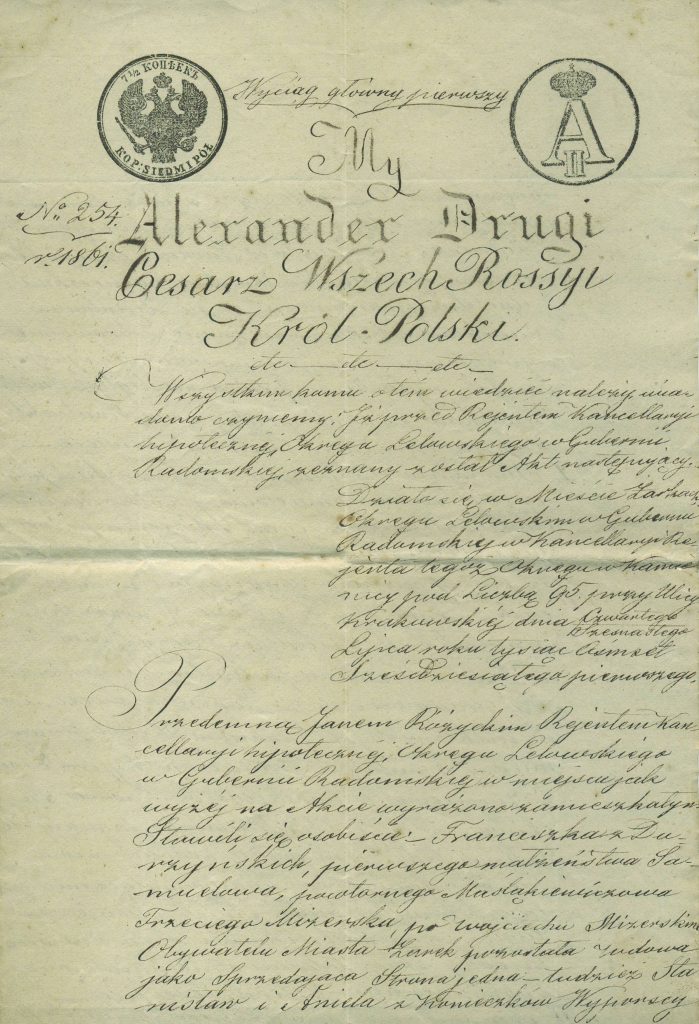 7½ КОПѢЕКЪ
KOP: SIEDM I PÓŁ
A II
Wyciąg główny pierwszy
No 254.
r. 1861.
My
Alexander Drugi
Cesarz Wszech Rossyi
Król Polski.
etc etc etc
Wszystkim komu o tem wiedzieć należy wia-
domo czyniemy. Iż przed Rejentem Kancellaryi
hipotecznej, Okręgu Lelowskiego w Gubernii
Radomskiej, zeznany został Akt następujący.
Działo się w Mieście
Okręgu Lelowskim w Gubernii
Radomskiej w Kancellaryi Re-
jenta tegoż Okręgu w Kamie-
nicy pod Liczbą 95. przy Ulicy
Krakowskiéj dnia Czwartego
Szesnastego
Lipca roku tysiąc ośmset
Sześćdziesiątego pierwszego.
Przedemną Janem Różyckim Rejentem Kan-
cellaryi hipotecznej, Okręgu Lelowskiego
w Gubernii Radomskiej w miejscu jak
wyżéj na Akcie wyrażono zamieszkałym
Stawili się osobiście: Franciszka z Du-
rzyńskich, pierwszego małżeństwa Sa-
mulowa, powtórnego Maślakiewiczowa
Trzeciego Mizerska, po Wojciechu Mizerskim
Obywatelu Miasta Żarek pozostała wdowa
jako Sprzedająca Strona jedna – tudzież Sta-
nisław i Aniela z Konieczków Wyporscy